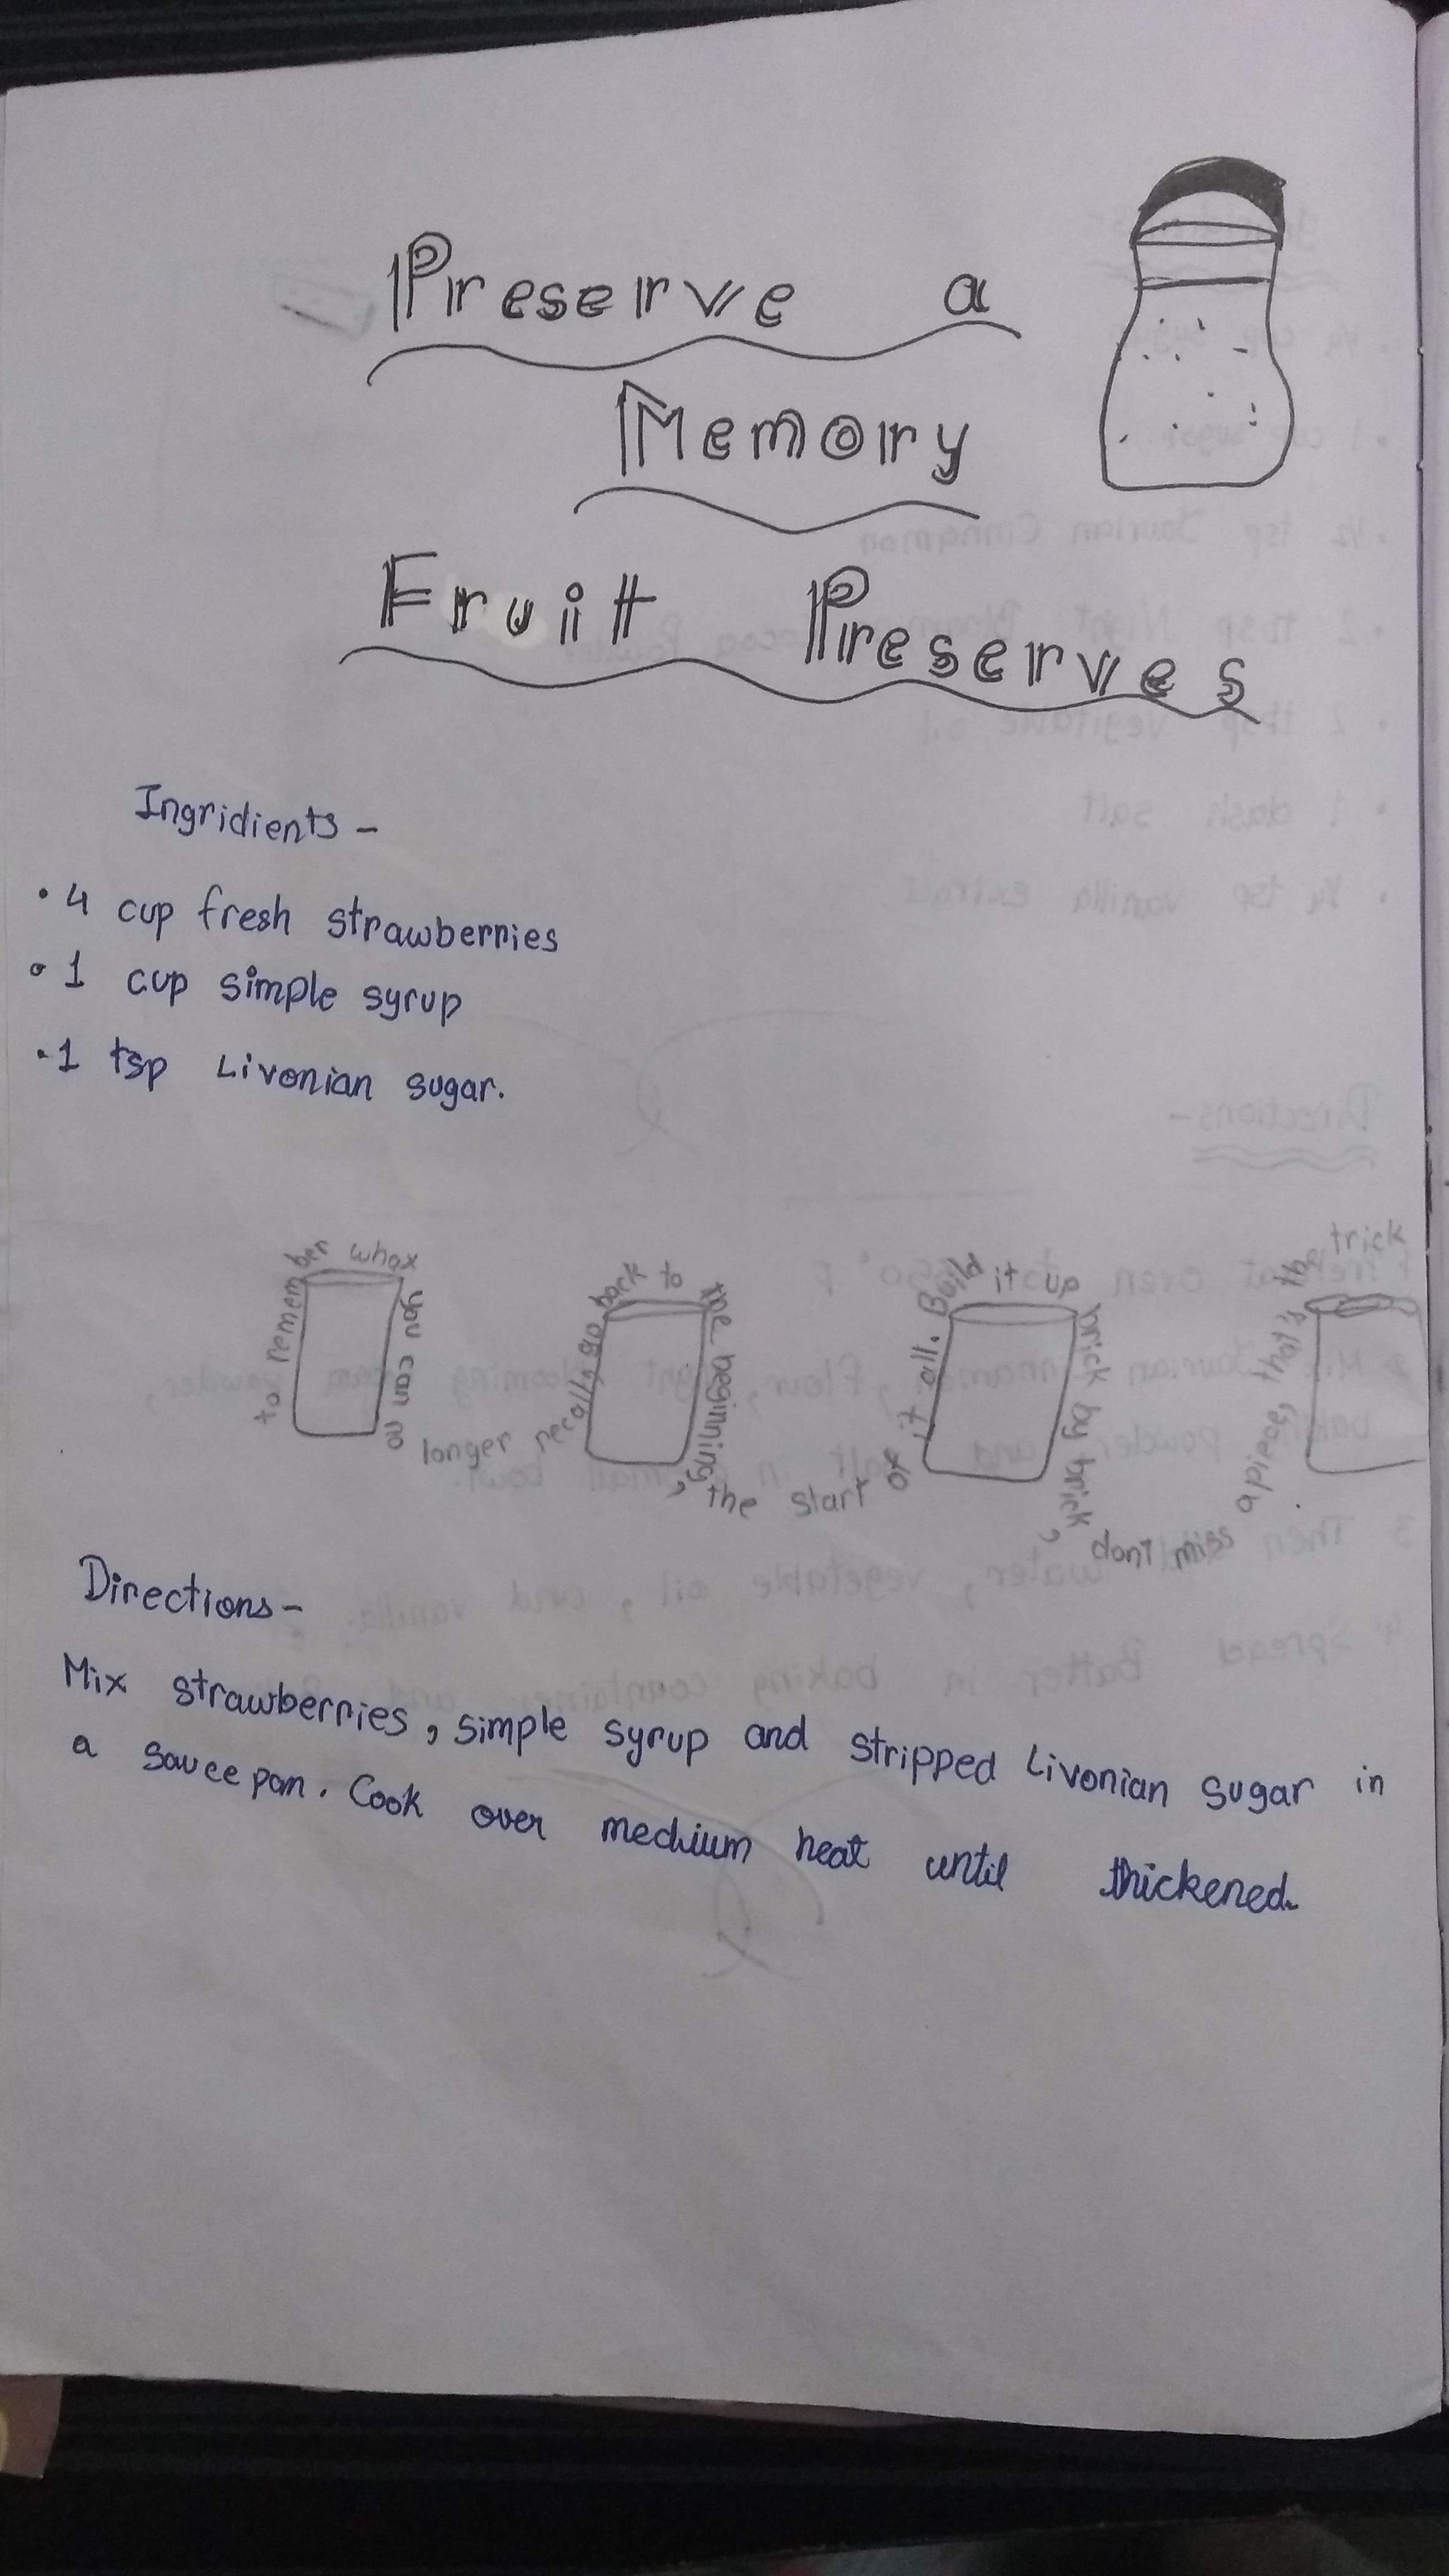 Preserve a
Memory
Fruit Preserves
Ingridients -
• 4 cup fresh strawberries
• 1 cup simple syrup
• 1 tsp Livonian sugar.
to remember whax you can no longer recall, go back to the beginning, the start to it all. Build it up brick by brick, dont miss apiece, that's the trick
Directions -
Mix strawberries, simple syrup and stripped Livonian sugar in
a sauce pan. Cook over medium heat until thickened.